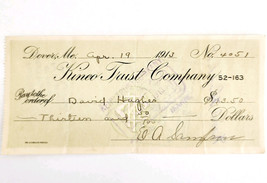 Dover, Mo. Apr. 19 1913 No. 4051
Kinco Trust Company 52-163
Pay to the order of David Hughes $13.50
Thirteen and 50/100 Dollars